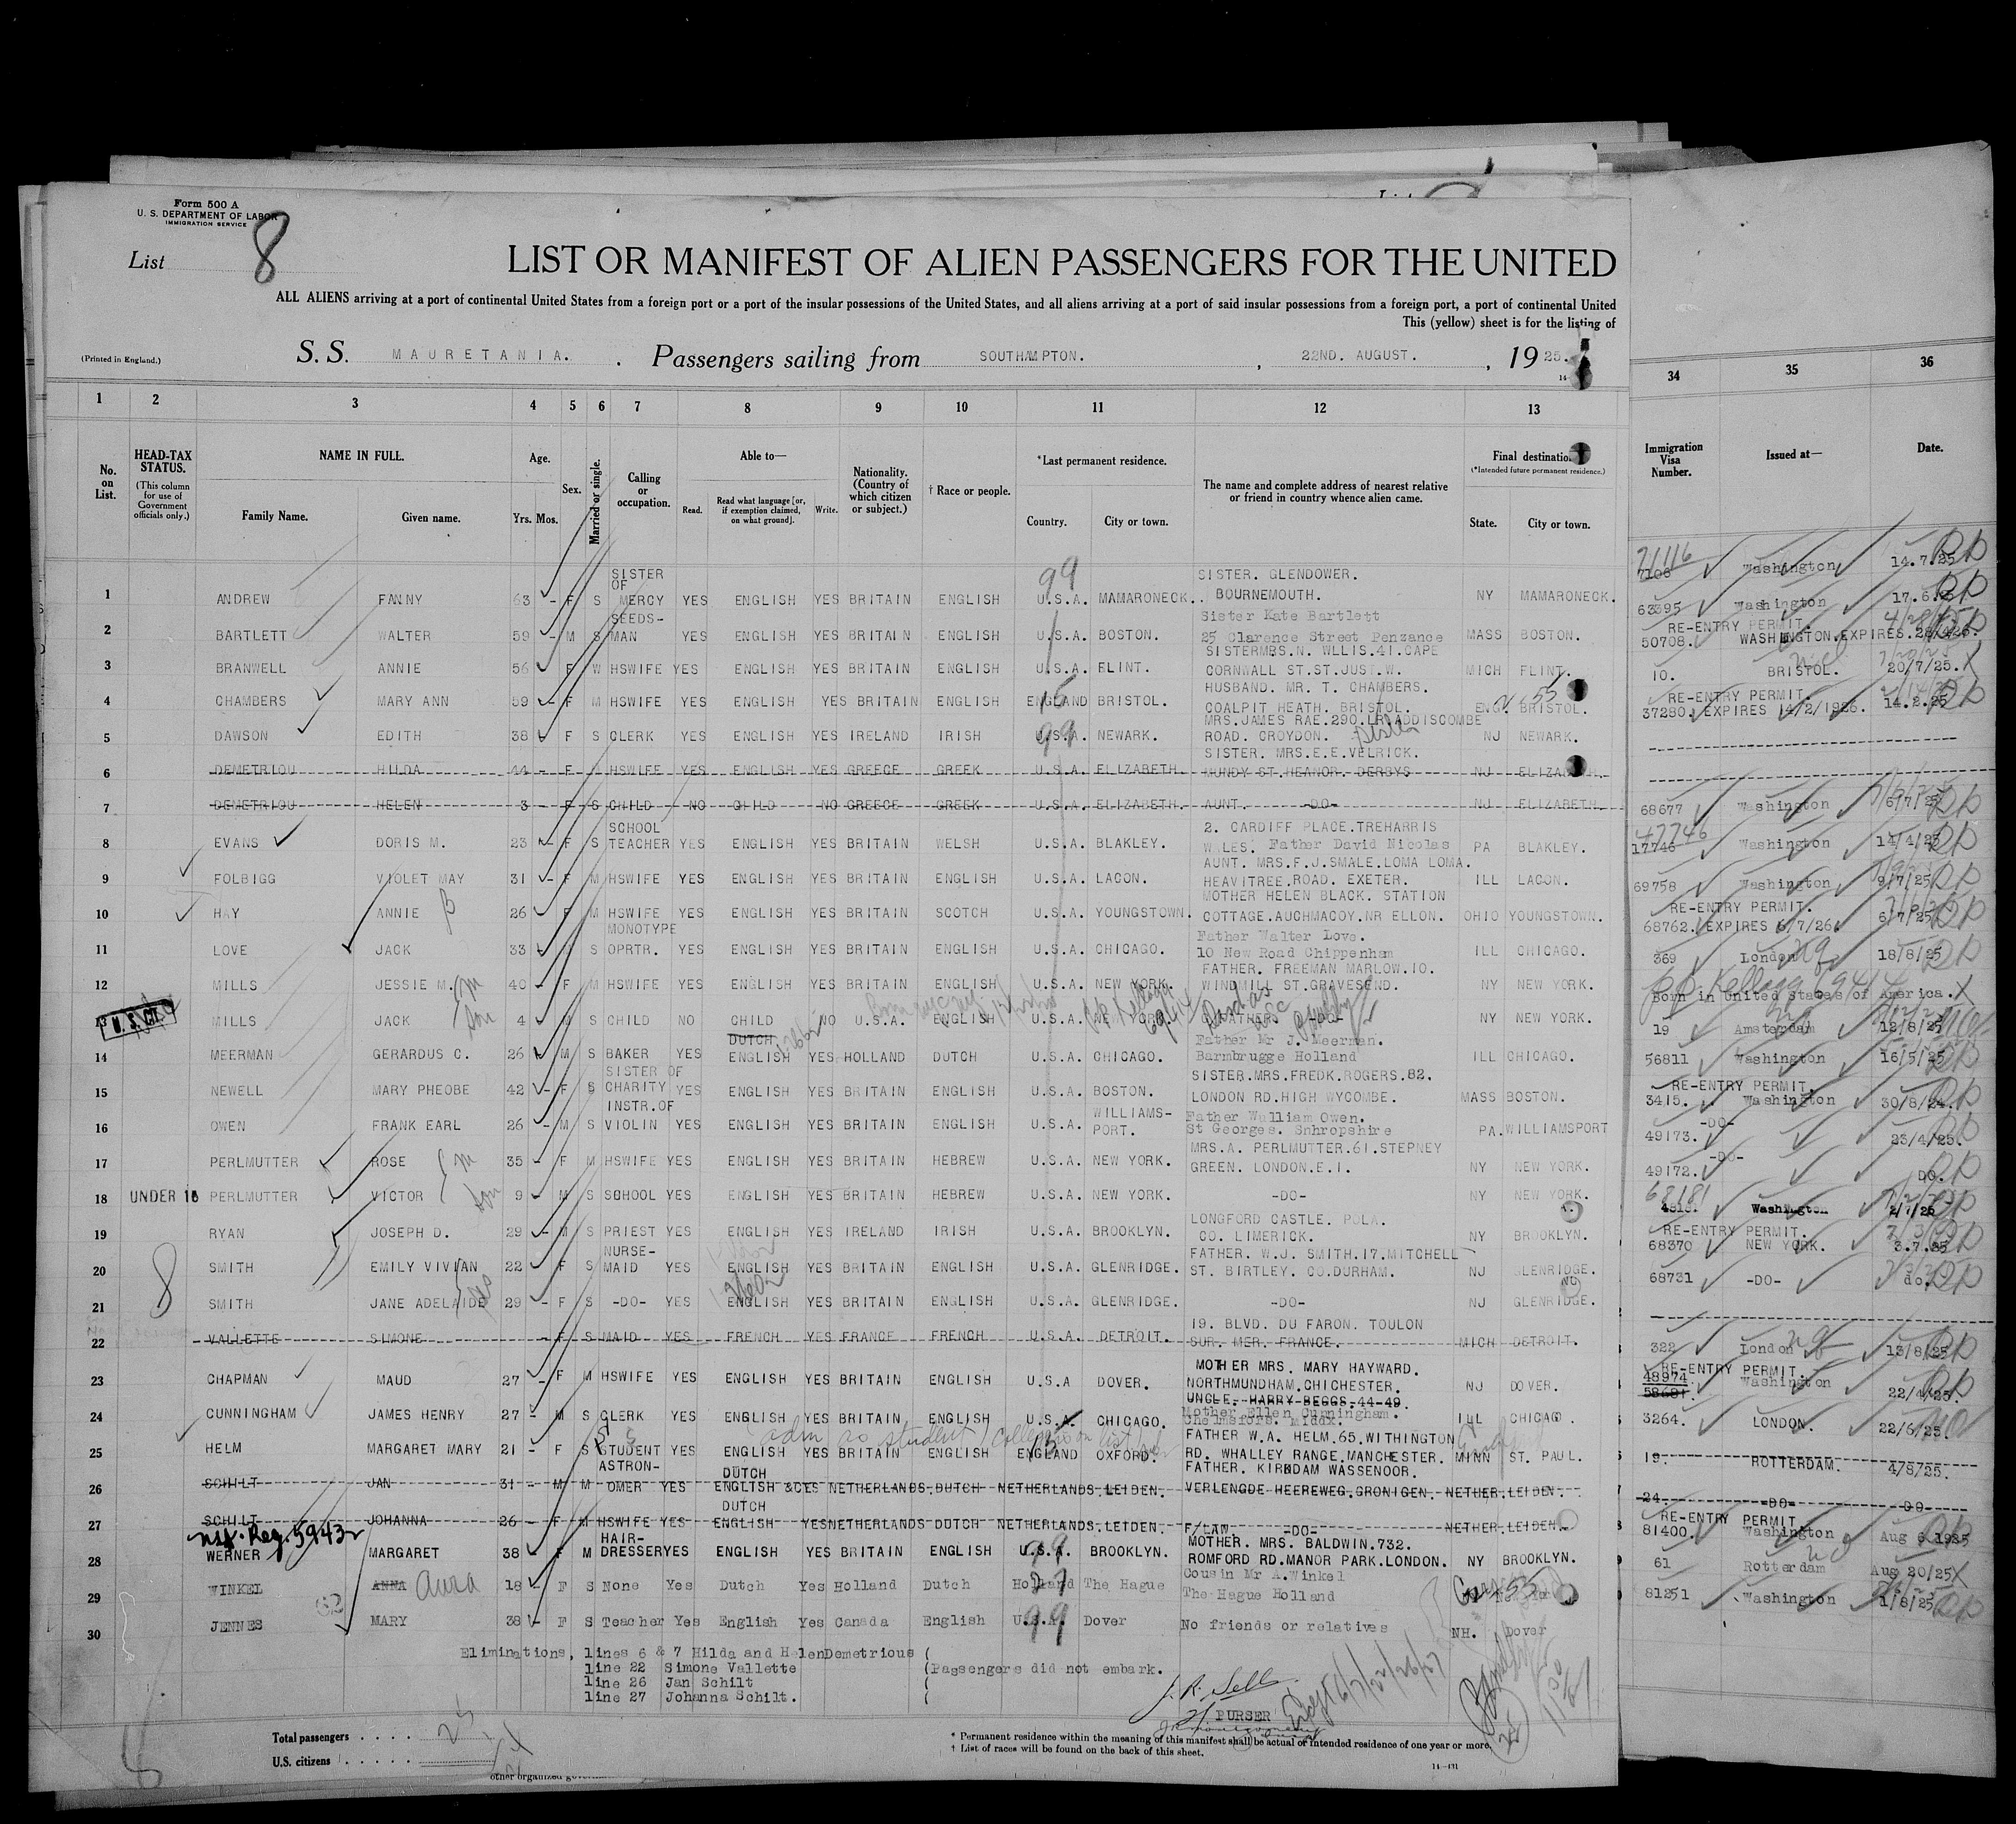 Form 500 A
U. S. DEPARTMENT OF LABOR
IMMIGRATION SERVICE
List 8
LIST OR MANIFEST OF ALIEN PASSENGERS FOR THE UNITED
ALL ALIENS arriving at a port of continental United States from a foreign port or a port of the insular possessions of the United States, and all aliens arriving at a port of said insular possessions from a foreign port, a port of continental United
This (yellow) sheet is for the listing of
(Printed in England.)
S. S. MAURETANIA. Passengers sailing from SOUTHAMPTON. , 22ND. AUGUST. , 19 25.
1 2 3 4 5 6 7 8 9 10 11 12 13 34 35 36
No. on List.
HEAD-TAX STATUS.
(This column for use of Government officials only.)
NAME IN FULL.
Family Name. Given name.
Age.
Yrs. Mos.
Sex.
Married or single.
Calling or occupation.
Able to—
Read. Read what language [or, if exemption claimed, on what ground]. Write.
Nationality. (Country of which citizen or subject.)
† Race or people.
*Last permanent residence.
Country. City or town.
The name and complete address of nearest relative or friend in country whence alien came.
Final destination
(*Intended future permanent residence.)
State. City or town.
Immigration Visa Number.
Issued at—
Date.
1 ANDREW FANNY 63 - F S SISTER OF MERCY YES ENGLISH YES BRITAIN ENGLISH U.S.A. MAMARONECK. SISTER. GLENDOWER. BOURNEMOUTH. NY MAMARONECK. 71116 7108 Washington 14.7.25
2 BARTLETT WALTER 59 - M S SEEDS-MAN YES ENGLISH YES BRITAIN ENGLISH U.S.A. BOSTON. Sister Kate Bartlett 25 Clarence Street Penzance MASS BOSTON. 63395 Washington 17.6.25
3 BRANWELL ANNIE 56 F W HSWIFE YES ENGLISH YES BRITAIN ENGLISH U.S.A. FLINT. SISTERMRS.N. WLLIS.41.CAPE CORNWALL ST.ST.JUST.W. MICH FLINT. RE-ENTRY PERMIT. 50708. WASHINGTON.EXPIRES.28/4/26.
4 CHAMBERS MARY ANN 59 - F M HSWIFE YES ENGLISH YES BRITAIN ENGLISH ENGLAND BRISTOL. HUSBAND. MR. T. CHAMBERS. COALPIT HEATH. BRISTOL. ENG. BRISTOL. 10. BRISTOL. 20/7/25.
5 DAWSON EDITH 38 F S CLERK YES ENGLISH YES IRELAND IRISH U.S.A. NEWARK. MRS.JAMES RAE.290.LR.ADDISCOMBE ROAD. CROYDON. NJ NEWARK. RE-ENTRY PERMIT. 37280. EXPIRES 14/2/1926. 14.2.25
6 DEMETRIOU HILDA 44 - F HSWIFE YES ENGLISH YES GREECE GREEK U.S.A. ELIZABETH. SISTER. MRS.E.E.VELRICK. MUNDY ST.HEANOR. DERBYS NJ
7 DEMETRIOU HELEN 3 - F S CHILD NO CHILD NO GREECE GREEK U.S.A. ELIZABETH. AUNT. -DO- NJ ELIZABETH.
8 EVANS DORIS M. 23 - F S SCHOOL TEACHER YES ENGLISH YES BRITAIN WELSH U.S.A. BLAKLEY. 2. CARDIFF PLACE.TREHARRIS WALES. Father David Nicolas PA BLAKLEY. 68677 Washington 6/7/25
9 FOLBIGG VIOLET MAY 31 - F M HSWIFE YES ENGLISH YES BRITAIN ENGLISH U.S.A. LACON. AUNT. MRS.F.J.SMALE.LOMA LOMA. HEAVITREE.ROAD. EXETER. ILL LACON. 47746 17746 Washington 14/4/25
10 HAY ANNIE 26 F M HSWIFE YES ENGLISH YES BRITAIN SCOTCH U.S.A. YOUNGSTOWN. MOTHER HELEN BLACK. STATION COTTAGE.AUCHMACOY.NR ELLON. OHIO YOUNGSTOWN. 69758 Washington 9/7/25
11 LOVE JACK 33 M S MONOTYPE OPRTR. YES ENGLISH YES BRITAIN ENGLISH U.S.A. CHICAGO. Father Walter Love. 10 New Road Chippenham ILL CHICAGO. RE-ENTRY PERMIT. 68762. EXPIRES 6/7/26. 6/7/25
12 MILLS JESSIE M. 40 - F M HSWIFE YES ENGLISH YES BRITAIN ENGLISH U.S.A. NEW YORK. FATHER. FREEMAN MARLOW.10. WINDMILL ST.GRAVESEND. NY NEW YORK. 369 London 18/8/25
13 U.S.CT. MILLS JACK 4 M S CHILD NO CHILD NO U.S.A. ENGLISH U.S.A. -DO- NY NEW YORK. Born in United States of America.
14 MEERMAN GERARDUS C. 26 M S BAKER YES DUTCH ENGLISH YES HOLLAND DUTCH U.S.A. CHICAGO. Father Mr J. Meerman. Barmbrugge Holland ILL CHICAGO. 19 Amsterdam 12/8/25
15 NEWELL MARY PHEOBE 42 - F S SISTER OF CHARITY YES ENGLISH YES BRITAIN ENGLISH U.S.A. BOSTON. SISTER.MRS.FREDK.ROGERS.82. LONDON RD.HIGH WYCOMBE. MASS BOSTON. 56811 Washington 16/5/25
16 OWEN FRANK EARL 26 - M S INSTR.OF VIOLIN YES ENGLISH YES BRITAIN ENGLISH U.S.A. WILLIAMS-PORT. Father William Owen. St Georges. Snhropshire PA. WILLIAMSPORT RE-ENTRY PERMIT. 3415. Washington 30/8/24.
17 PERLMUTTER ROSE 35 - F M HSWIFE YES ENGLISH YES BRITAIN HEBREW U.S.A. NEW YORK. MRS.A. PERLMUTTER.61.STEPNEY GREEN. LONDON.E.1. NY NEW YORK. 49173. -DO- 23/4/25.
18 UNDER 16 PERLMUTTER VICTOR 9 M S SCHOOL YES ENGLISH YES BRITAIN HEBREW U.S.A. NEW YORK. -DO- NY NEW YORK. 49172. -DO- DO.
19 RYAN JOSEPH D. 29 - M S PRIEST YES ENGLISH YES IRELAND IRISH U.S.A. BROOKLYN. LONGFORD CASTLE. POLA. CO. LIMERICK. NY BROOKLYN. 68181 Washington 2/7/25
20 SMITH EMILY VIVIAN 22 F S NURSE-MAID YES ENGLISH YES BRITAIN ENGLISH U.S.A. GLENRIDGE. FATHER. W.J. SMITH.17.MITCHELL ST. BIRTLEY. CO.DURHAM. NJ GLENRIDGE. RE-ENTRY PERMIT. 68370 NEW YORK. 3.7.25
21 SMITH JANE ADELAIDE 29 - F S -DO- YES ENGLISH YES BRITAIN ENGLISH U.S.A. GLENRIDGE. -DO- NJ GLENRIDGE. 68731 -DO- do.
22 VALLETTE SIMONE - F S MAID YES FRENCH YES FRANCE FRENCH U.S.A. DETROIT. 19. BLVD. DU FARON. TOULON SUR. MER. FRANCE. MICH DETROIT.
23 CHAPMAN MAUD 27 - F M HSWIFE YES ENGLISH YES BRITAIN ENGLISH U.S.A DOVER. MOTHER MRS. MARY HAYWARD. NORTHMUNDHAM.CHICHESTER. NJ DOVER. 322 London 13/8/25
24 CUNNINGHAM JAMES HENRY 27 - M S CLERK YES ENGLISH YES BRITAIN ENGLISH U.S.A. CHICAGO. UNCLE. HARRY BEGGS.44-49. Mother Ellen Cunningham. ILL CHICAGO. RE-ENTRY PERMIT. 48974. 58681. Washington 22/4/25.
25 HELM MARGARET MARY 21 - F S STUDENT YES ENGLISH YES BRITAIN ENGLISH ENGLAND OXFORD. FATHER W.A. HELM.65.WITHINGTON RD. WHALLEY RANGE.MANCHESTER. MINN ST. PAUL. 3264. LONDON. 22/6/25.
26 SCHILT JAN 31 - M M ASTRON-OMER YES DUTCH ENGLISH &C YES NETHERLANDS.DUTCH NETHERLANDS.LEIDEN. FATHER. KIRKDAM WASSENOOR. VERLENGDE HEEREWEG.GRONIGEN. NETHER.LEIDEN. 19. ROTTERDAM. 4/8/25.
27 SCHILT JOHANNA 26 - F M HSWIFE YES DUTCH ENGLISH YES NETHERLANDS DUTCH NETHERLANDS.LEIDEN. F/LAW -DO- NETHER.LEIDEN. 24. -DO- DO
28 WERNER MARGARET 38 - F M HAIR-DRESSER YES ENGLISH YES BRITAIN ENGLISH U.S.A. BROOKLYN. MOTHER. MRS. BALDWIN.732. ROMFORD RD.MANOR PARK.LONDON. NY BROOKLYN. RE-ENTRY PERMIT 81400. Washington Aug 6 1925
29 WINKEL ANNA 18 - F S None Yes Dutch Yes Holland Dutch Holland The Hague Cousin Mr A.Winkel The Hague Holland 61 Rotterdam Aug 20/25
30 JENNES MARY 38 - F S Teacher Yes English Yes Canada English U.S.A. Dover No friends or relatives NH. Dover 81251 Washington 1/8/25
Eliminations, lines 6 & 7 Hilda and HelenDemetrious (
line 22 Simone Vallette (Passengers did not embark.
line 26 Jan Schilt (
line 27 Johanna Schilt. (
PURSER
Total passengers . . . .
U.S. citizens . . . . .
* Permanent residence within the meaning of this manifest shall be actual or intended residence of one year or more.
† List of races will be found on the back of this sheet.
14—431